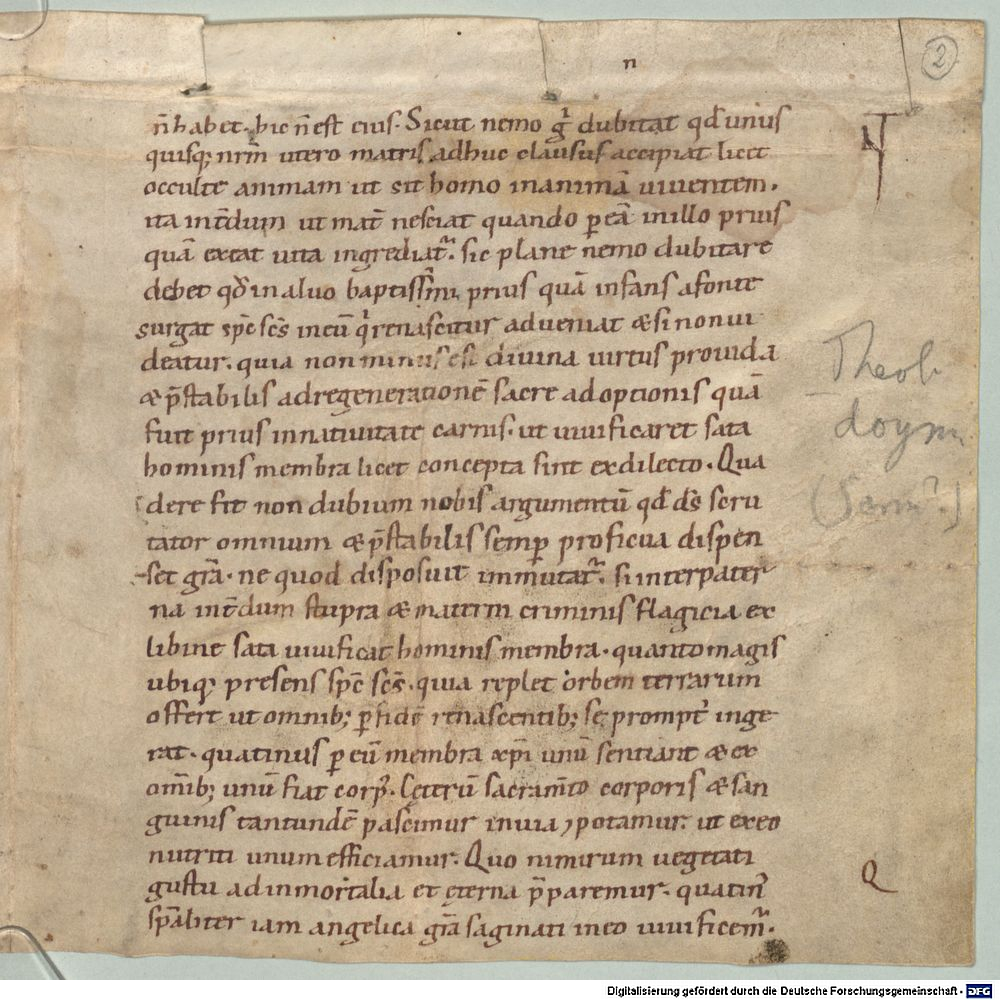 n
2
n̄ habet. hic n̄ est eius. Sicut nemo gͥ dubitat qd̄ unius
quisq; nr̄m utero matris adhuc clausus accipiat licet
occulte animam ut sit homo in animā uiuentem.
ita int̄dum ut mat̄ nesciat quando ꝑ eā in illo prius
quā extat uita ingrediat᷑. sic plane nemo dubitare
debet qd̄ in aluo baptissmi prius quā infans a fonte
surgat sp̄c sc̄s in eū qͥ renascitur adueniat & si non ui
deatur. quia non minus est diuina uirtus prouida
& p̄stabilis ad regenerationē sacre adoptionis quā
fuit prius in natiuitate carnis. ut uiuificaret sata
hominis membra licet concepta sint ex dilecto. Qua
dere fit non dubium nobis argumentū qd̄ ds̄ scru
tator omnium & p̄stabilis semꝑ proficua dispen
set gr̄a. ne quod disposuit immutat᷑. si inter pater
na int̄dum stupra & matern criminis flagicia ex
libine sata uiuificat hominis membra. quanto magis
ubiq; presens sp̄c sc̄s. quia replet orbem terrarum
offert ut omnib; ꝑ fidē renascentib; se prompt᷑ inge
rat. quatinus ꝑ eū membra xp̄i unū sentiant & ex
om̄ib; unū fiat corpꝰ. Cet̄rū sacram̄to corporis & san
guinis tantundē pascimur in uia, potamur. ut ex eo
nutriti unum efficiamur. Quo nimirum uegetati
gustu ad inmortalia et ęterna p̄paremur. quatinꝰ
sp̄aliter iam angelica gr̄a saginati in eo uiuificem᷑.
Theol.
(Serm.)
Q
Digitalisierung gefördert durch die Deutsche Forschungsgemeinschaft - DFG